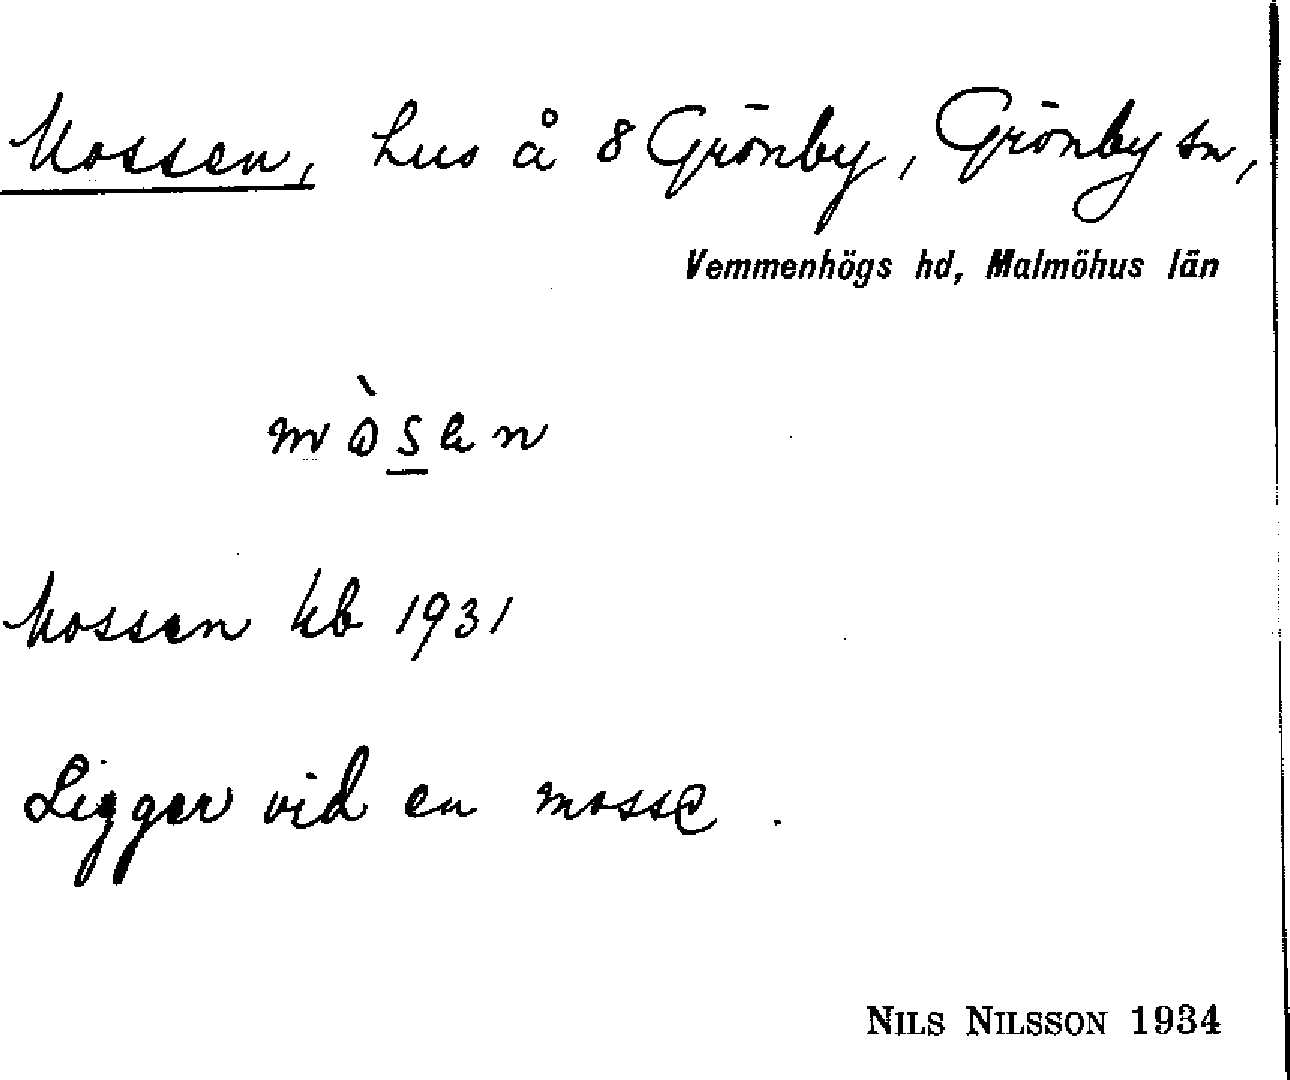 Mossen, hus å 8 Grönby, Grönby sn,
Vemmenhögs hd, Malmöhus län
mòsen
Mossen kb 1931
Ligger vid en mosse.
NILS NILSSON 1934